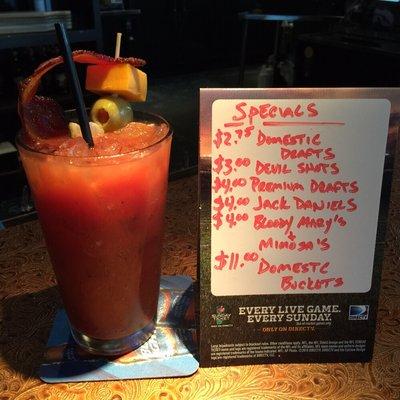 SPECIALS
$2.75 DOMESTIC
DRAFTS
$3.00 DEVIL SHOTS
$4.00 PREMIUM DRAFTS
$4.00 JACK DANIELS
$4.00 BLOODY MARY'S
+
MIMOSA'S
$11.00 DOMESTC
BUCKETS
EVERY LIVE GAME.
EVERY SUNDAY.
ONLY ON DIRECTV.
DIRECTV